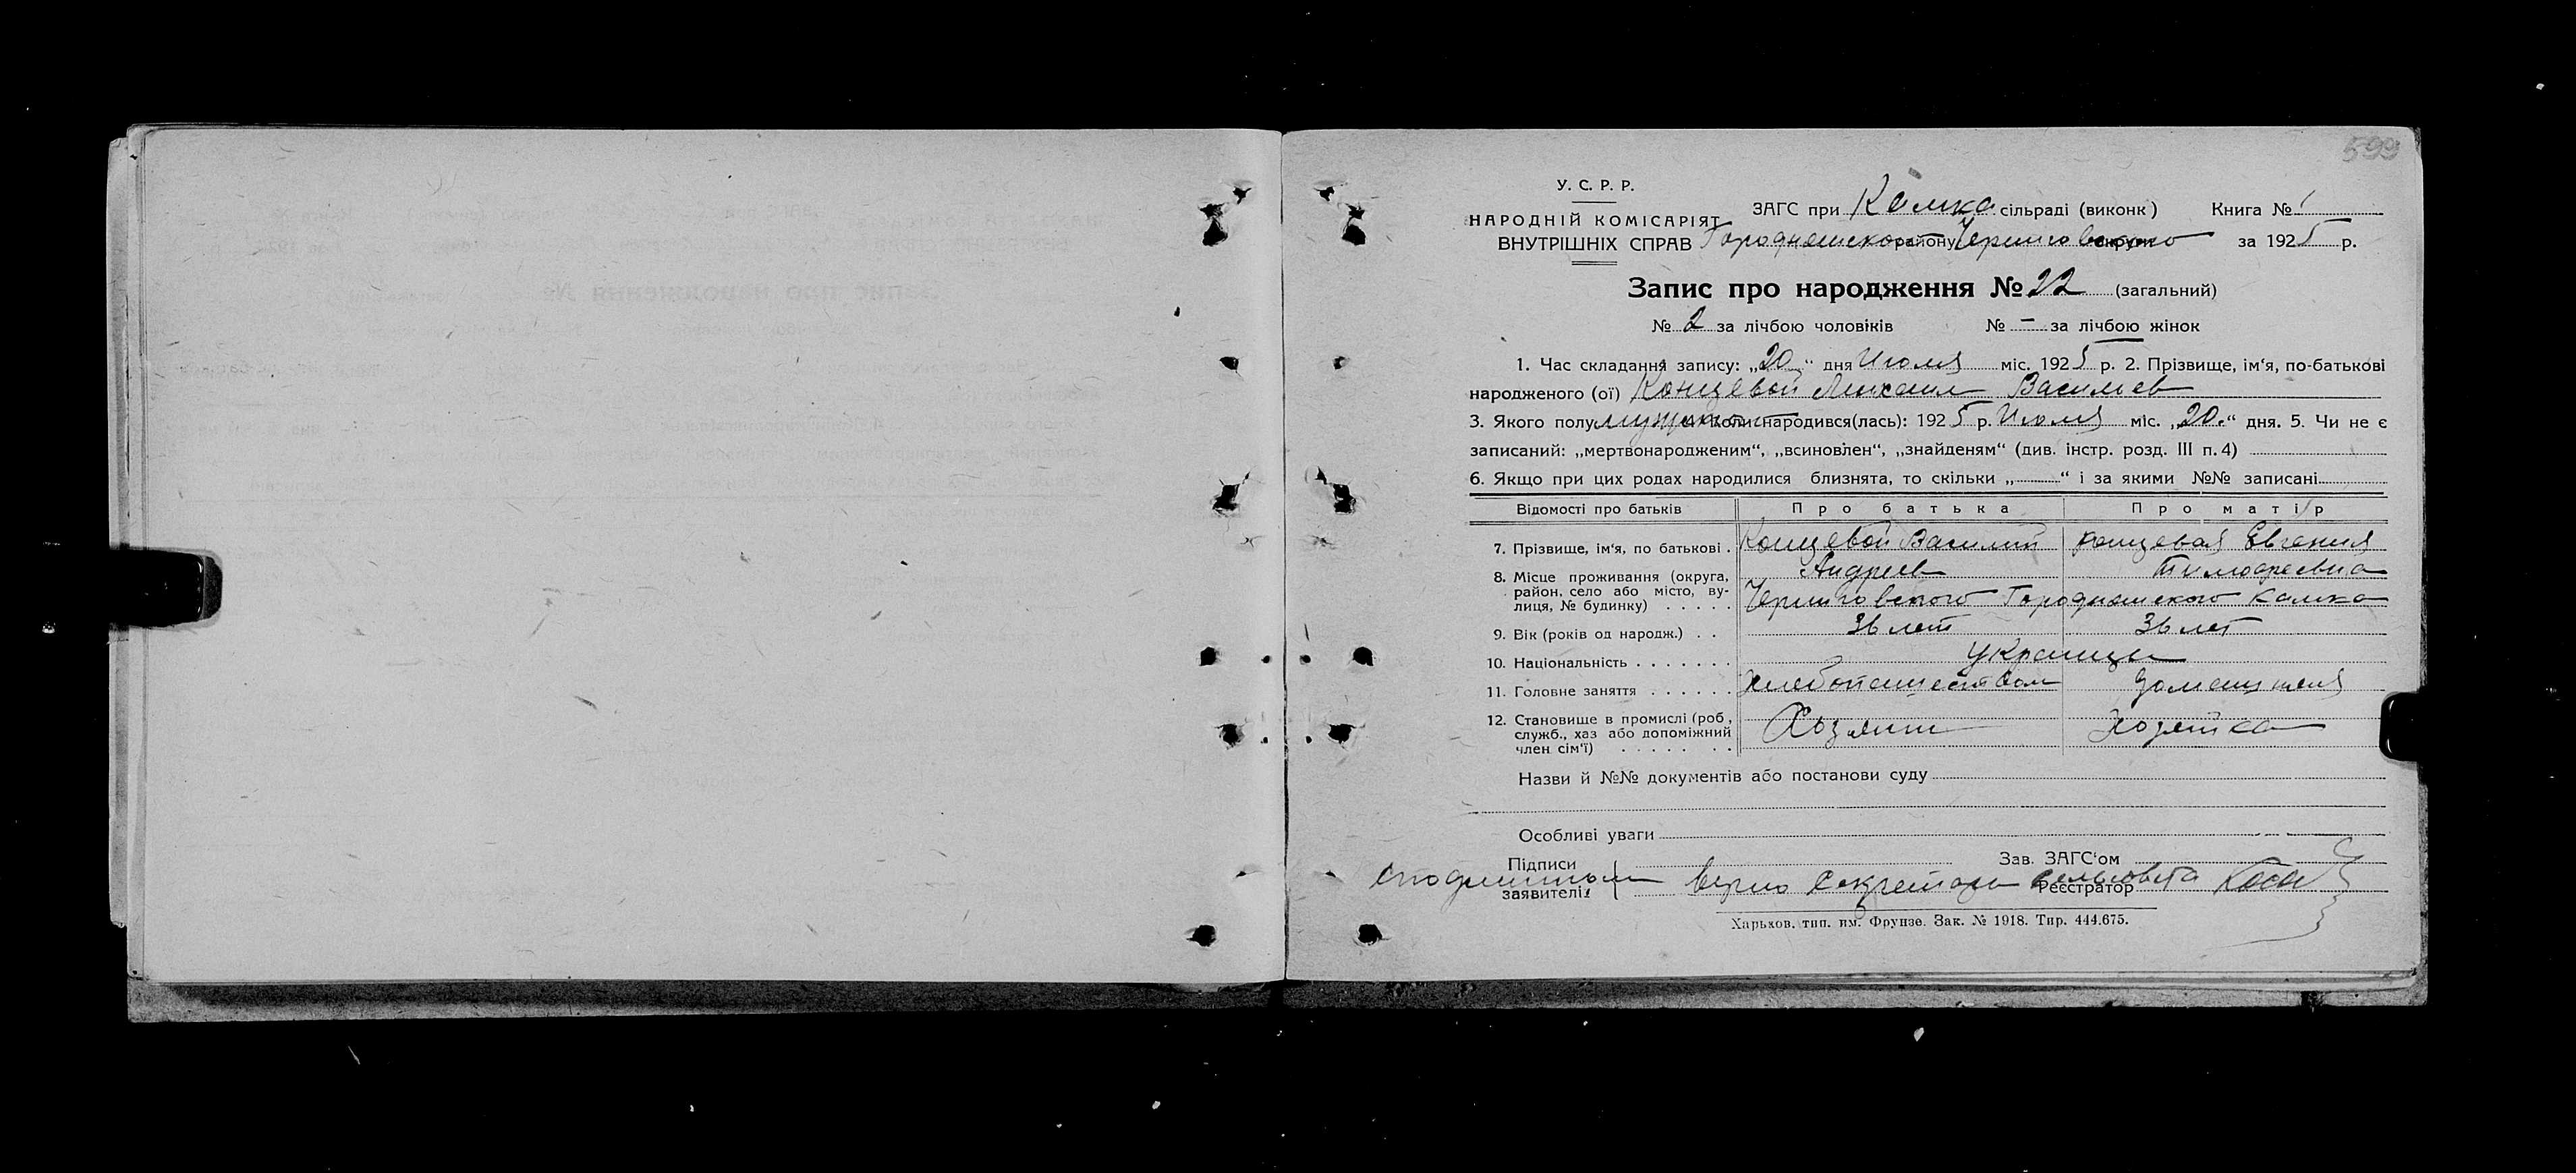 599
У. С. Р. Р.
НАРОДНІЙ КОМІСАРІЯТ
ВНУТРІШНІХ СПРАВ
ЗАГС при Камка сільраді (виконк) Книга № 1
Городнянского району Черниговского округи за 1925 р.
Запис про народження № 22 (загальний)
№ 2 за лічбою чоловіків № - за лічбою жінок
1. Час складання запису: „20“ дня Июля міс. 1925 р. 2. Прізвище, ім'я, по-батькові
народженого (ої) Концевой Михаил Васильев
3. Якого полу мужского 4. Коли народився(лась): 1925 р. Июля міс. „20.“ дня. 5. Чи не є
записаний: „мертвонародженим“, „всиновлен“, „знайденям“ (див. інстр. розд. III п. 4)
6. Якщо при цих родах народилися близнята, то скільки „“ і за якими №№ записані
Відомості про батьків Про батька Про матір
7. Прізвище, ім'я, по батькові . Концевой Василий Концевая Евгения
Андреев Тимофеевна
8. Місце проживання (округа,
район, село або місто, ву-
лиця, № будинку) . . . . . Черниговского Городнянского Камка
9. Вік (років од народж.) . . 36 лет 36 лет
10. Національність . . . . . . . Украинцы
11. Головне заняття . . . . . . Хлебопашеством Домашняя
12. Становище в промислі (роб,
служб., хаз або допоміжний
член сім'ї) . . . . . . . Хозяин Хозяйка
Назви й №№ документів або постанови суду
Особливі уваги
Підписи
заявителів
Зав. ЗАГС'ом
С подлинным верно Секретарь сельсовета
Реєстратор
Харьков, тип. им. Фрунзе. Зак. № 1918. Тир. 444.675.